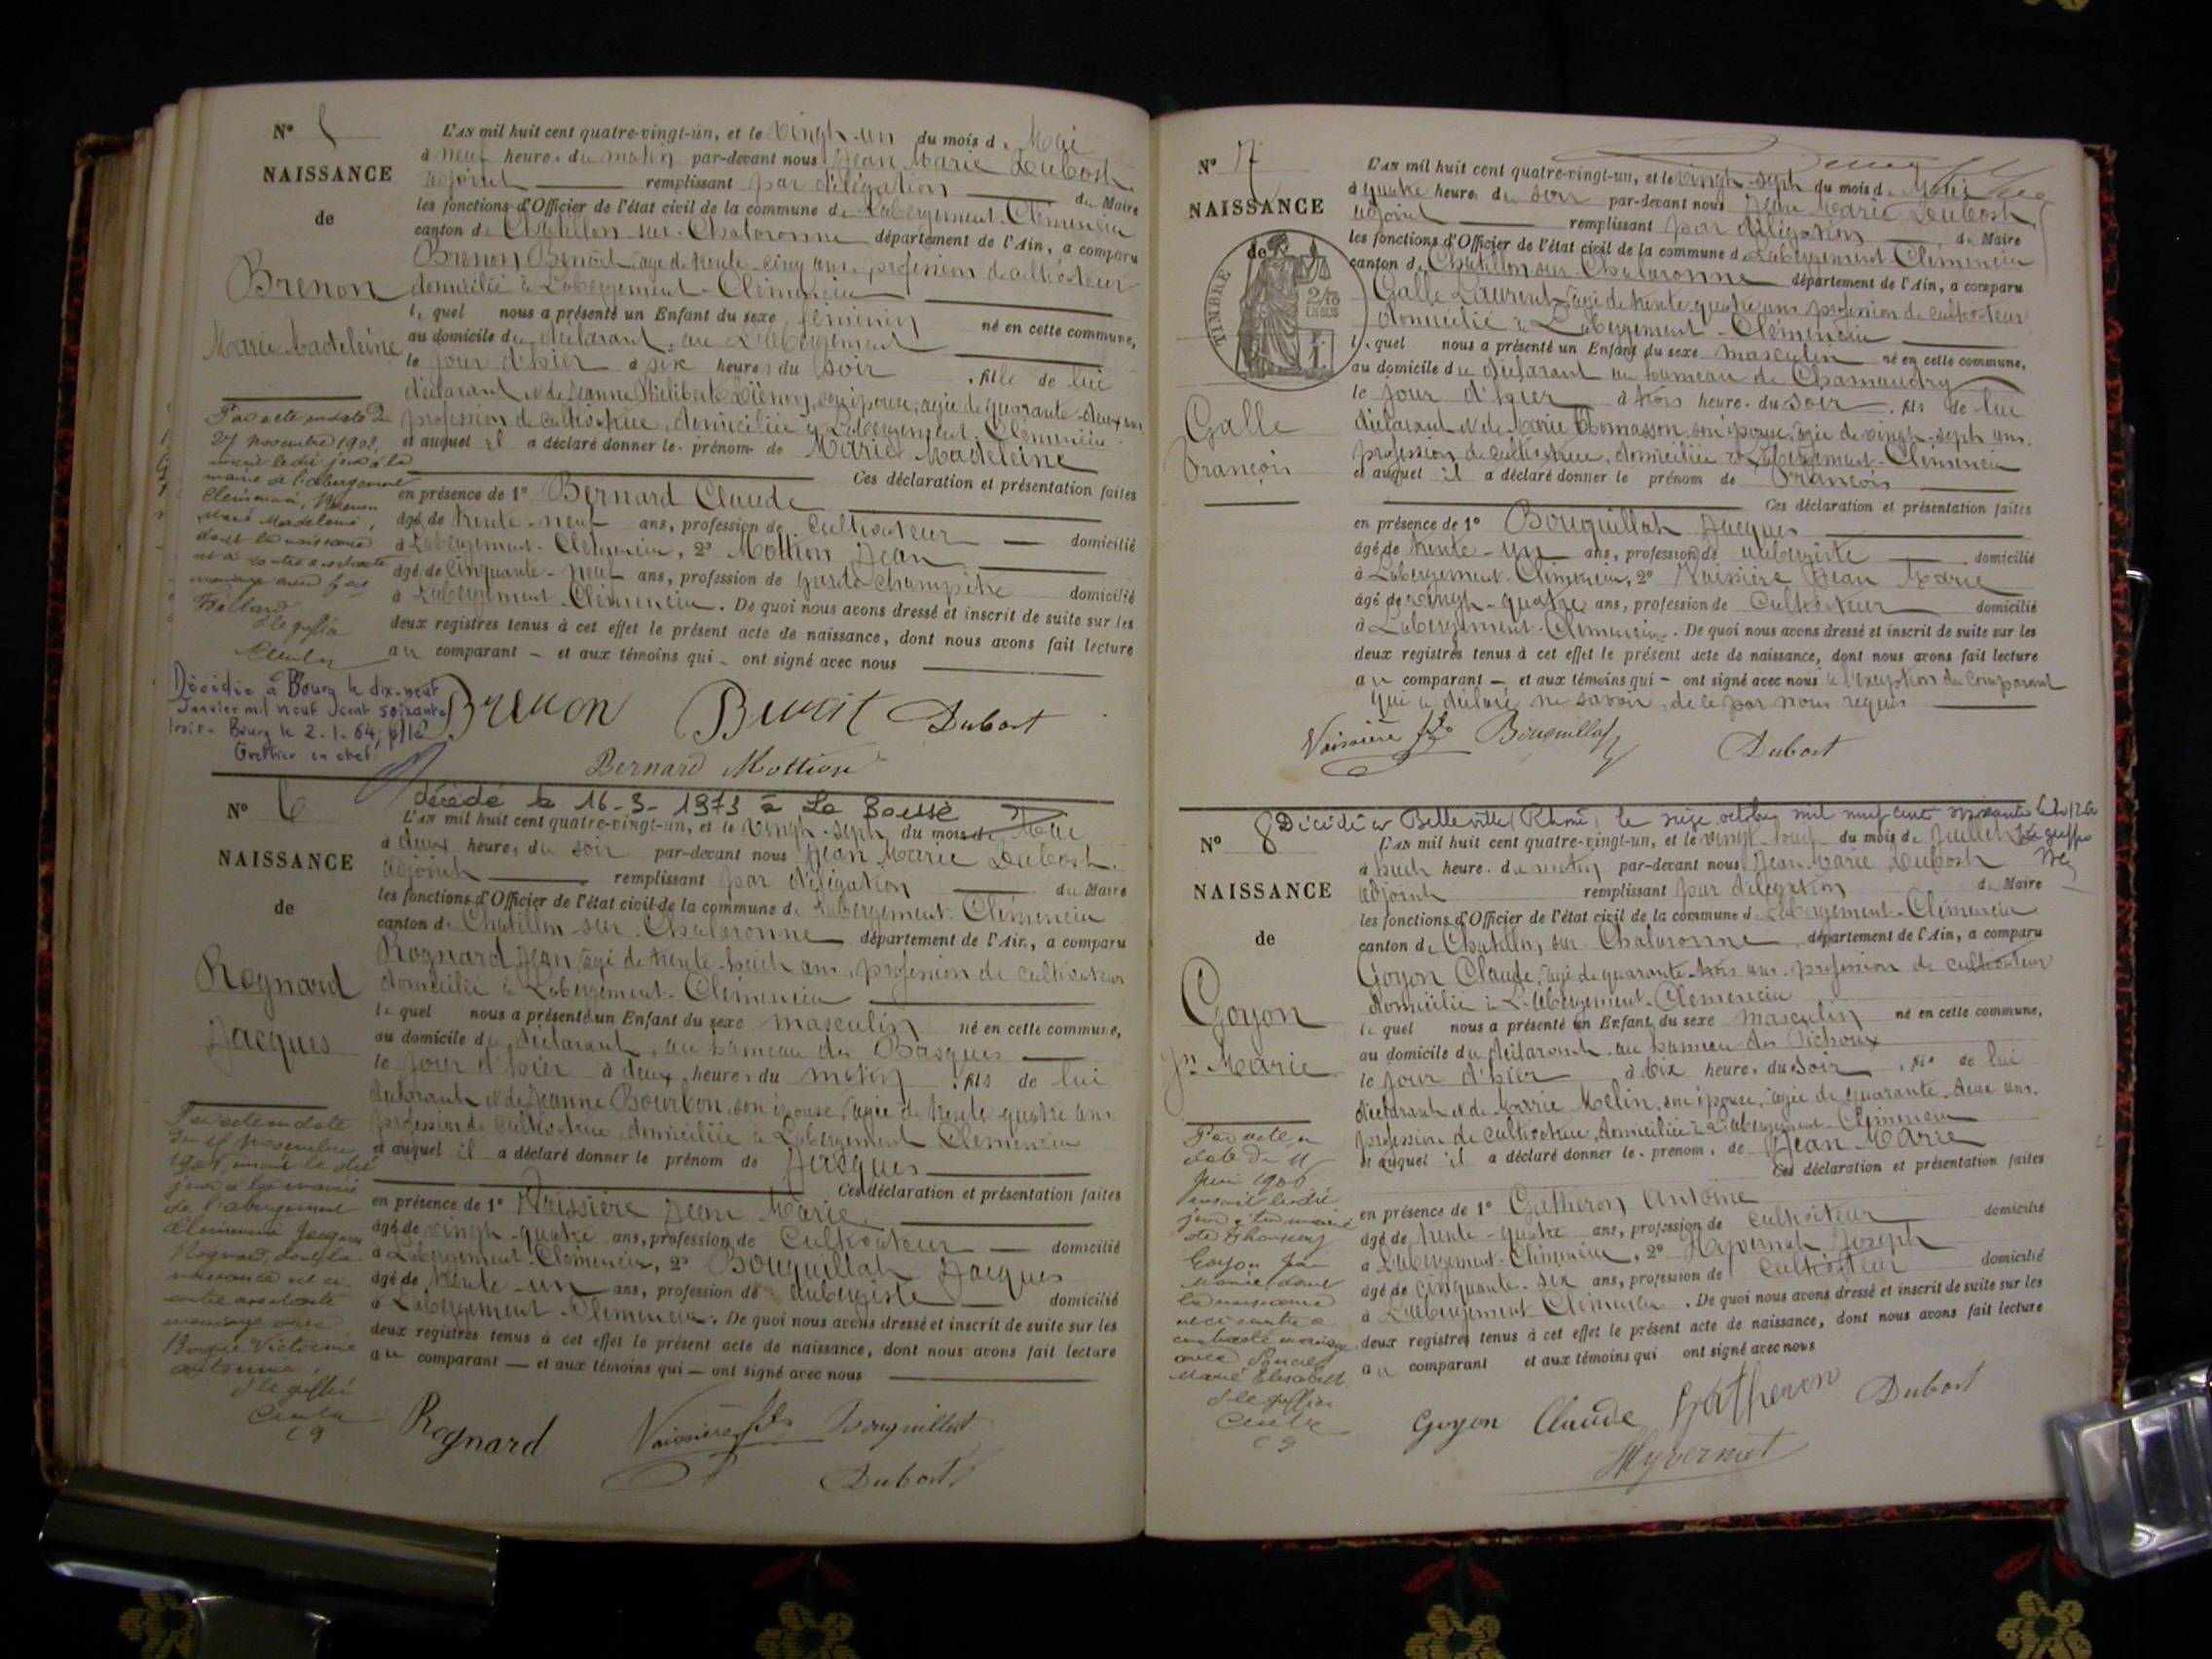 N° 5
NAISSANCE
de
Brenon
Marie Madeleine
L'AN mil huit cent quatre-vingt-un, et le vingt-un du mois de Mai
à neuf heures du matin par-devant nous Jean Marie Dubost
adjoint remplissant par délégation du Maire
les fonctions d'Officier de l'état civil de la commune de Labergement-Clémencia
canton de Chatillon-sur-Chalaronne département de l'Ain, a comparu
Brenon Benoit, âgé de trente-cinq ans, profession de cultivateur
domicilié à Labergement-Clémencia
lequel nous a présenté un Enfant du sexe féminin né en cette commune,
au domicile du déclarant, au Labergement
le jour d'hier à six heures du soir, fille de lui
déclarant et de Jeanne Philiberte son épouse, agée de quarante-deux ans
profession de cultivatrice, domiciliée à Labergement-Clémencia
et auquel il a déclaré donner les prénoms de Marie Madeleine
Ces déclaration et présentation faites
en présence de 1° Bernard Claude
âgé de trente-neuf ans, profession de cultivateur domicilié
à Labergement-Clémencia, 2° Mottion Jean
âgé de cinquante-neuf ans, profession de garde champêtre domicilié
à Labergement-Clémencia. De quoi nous avons dressé et inscrit de suite sur les
deux registres tenus à cet effet le présent acte de naissance, dont nous avons fait lecture
au comparant - et aux témoins qui - ont signé avec nous
Brenon Benoit Dubost
Bernard Mottion
Par acte en date du
27 novembre 1901,
inscrit le dit jour à la
mairie de l'abergement
Clémencia, Brenon
Marie Madeleine,
dont la naissance
est ci contre a contracté
mariage avec
Le greffier
Décédée à Bourg le dix-neuf
Janvier mil neuf cent soixante
trois - Bourg le 2-1-64;
Greffier en chef
N° 6
NAISSANCE
de
Rognard
Jacques
décédé le 16-3-1973 à La Boisse
L'AN mil huit cent quatre-vingt-un, et le vingt-sept du mois de Mai
à deux heures du soir par-devant nous Jean Marie Dubost
adjoint remplissant par délégation du Maire
les fonctions d'Officier de l'état civil de la commune de Labergement-Clémencia
canton de Chatillon-sur-Chalaronne département de l'Ain, a comparu
Rognard Jean, âgé de trente-huit ans, profession de cultivateur
domicilié à Labergement-Clémencia
lequel nous a présenté un Enfant du sexe masculin né en cette commune,
au domicile du déclarant, au hameau des Basques
le jour d'hier à deux heures du matin, fils de lui
déclarant et de Jeanne Bourbon, son épouse, agée de trente-quatre ans
profession de cultivatrice, domiciliée à Labergement Clémencia
et auquel il a déclaré donner le prénom de Jacques
Ces déclaration et présentation faites
en présence de 1° Vaissière Jean Marie
âgé de vingt-quatre ans, profession de Cultivateur domicilié
à Labergement-Clémencia, 2° Bouquillat Jacques
âgé de trente-un ans, profession de aubergiste domicilié
à Labergement-Clémencia. De quoi nous avons dressé et inscrit de suite sur les
deux registres tenus à cet effet le présent acte de naissance, dont nous avons fait lecture
au comparant - et aux témoins qui - ont signé avec nous
Rognard Vaissière fils Bouquillat
Dubost
Par acte en date
du novembre
inscrit le dit
jour à la mairie
de l'abergement
Clémencia Jacques
Rognard, dont la
naissance est ci
contre a contracté
mariage avec
Victorine
Le greffier
N° 7
NAISSANCE
de
TIMBRE
2/10
EN SUS
Galle
François
L'AN mil huit cent quatre-vingt-un, et le vingt-sept du mois de Mai
à quatre heures du soir par-devant nous Jean Marie Dubost
adjoint remplissant par délégation du Maire
les fonctions d'Officier de l'état civil de la commune de Labergement-Clémencia
canton de Chatillon-sur-Chalaronne département de l'Ain, a comparu
Galle Laurent, âgé de trente-quatre ans profession de cultivateur
domicilié à Labergement-Clémencia
lequel nous a présenté un Enfant du sexe masculin né en cette commune,
au domicile du déclarant au hameau de Chamaudry
le jour d'hier à trois heures du soir, fils de lui
déclarant et de Marie Thomasson son épouse, agée de vingt-sept ans
profession de cultivatrice, domiciliée à Labergement-Clémencia
et auquel il a déclaré donner le prénom de François
Ces déclaration et présentation faites
en présence de 1° Bouquillat Jacques
âgé de trente-un ans, profession de aubergiste domicilié
à Labergement-Clémencia, 2° Vaissière Jean Marie
âgé de vingt-quatre ans, profession de Cultivateur domicilié
à Labergement-Clémencia. De quoi nous avons dressé et inscrit de suite sur les
deux registres tenus à cet effet le présent acte de naissance, dont nous avons fait lecture
au comparant - et aux témoins qui - ont signé avec nous à l'exception du comparant
qui a déclaré ne savoir, de ce par nous requis
Vaissière fils Bouquillat Dubost
N° 8
NAISSANCE
de
Goyon
Jn Marie
Décédé à Belleville (Rhône) le seize octobre mil neuf cent soixante
L'AN mil huit cent quatre-vingt-un, et le vingt du mois de Juillet
à huit heures du matin par-devant nous Jean Marie Dubost
adjoint remplissant par délégation du Maire
les fonctions d'Officier de l'état civil de la commune de Labergement-Clémencia
canton de Chatillon sur Chalaronne département de l'Ain, a comparu
Goyon Claude, âgé de quarante-trois ans profession de cultivateur
domicilié à Labergement-Clémencia
lequel nous a présenté un Enfant du sexe masculin né en cette commune,
au domicile du déclarant au hameau des Pichoux
le jour d'hier à six heures du soir, fils de lui
déclarant et de Marie Melin, son épouse, agée de quarante-deux ans
profession de cultivatrice, domiciliée à Labergement-Clémencia
et auquel il a déclaré donner les prénoms de Jean Marie
Ces déclaration et présentation faites
en présence de 1° Gatheron Antoine
âgé de trente-quatre ans, profession de cultivateur domicilié
à Labergement-Clémencia, 2° Hyvernat Joseph
âgé de cinquante-six ans, profession de cultivateur domicilié
à Labergement Clémencia. De quoi nous avons dressé et inscrit de suite sur les
deux registres tenus à cet effet le présent acte de naissance, dont nous avons fait lecture
au comparant et aux témoins qui ont signé avec nous
Goyon Claude Gatheron Dubost
Hyvernat
Par acte en
date du 11
Juin 1906
inscrit le dit
jour à la mairie
de Thoissey
Goyon Jean
Marie dont
la naissance
est ci contre a
contracté mariage
avec
Marie Elisabeth
Le greffier